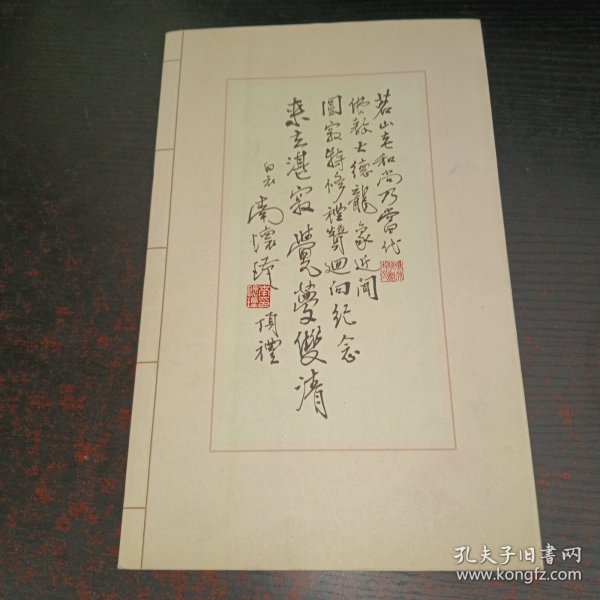 茗山老和尚乃當代
佛教大德龍象近闻
圆寂特修禮贊迴向纪念
来去湛寂覺夢雙清
白衣南懷瑾
顶禮
孔夫子旧书网
www.kongfz.com